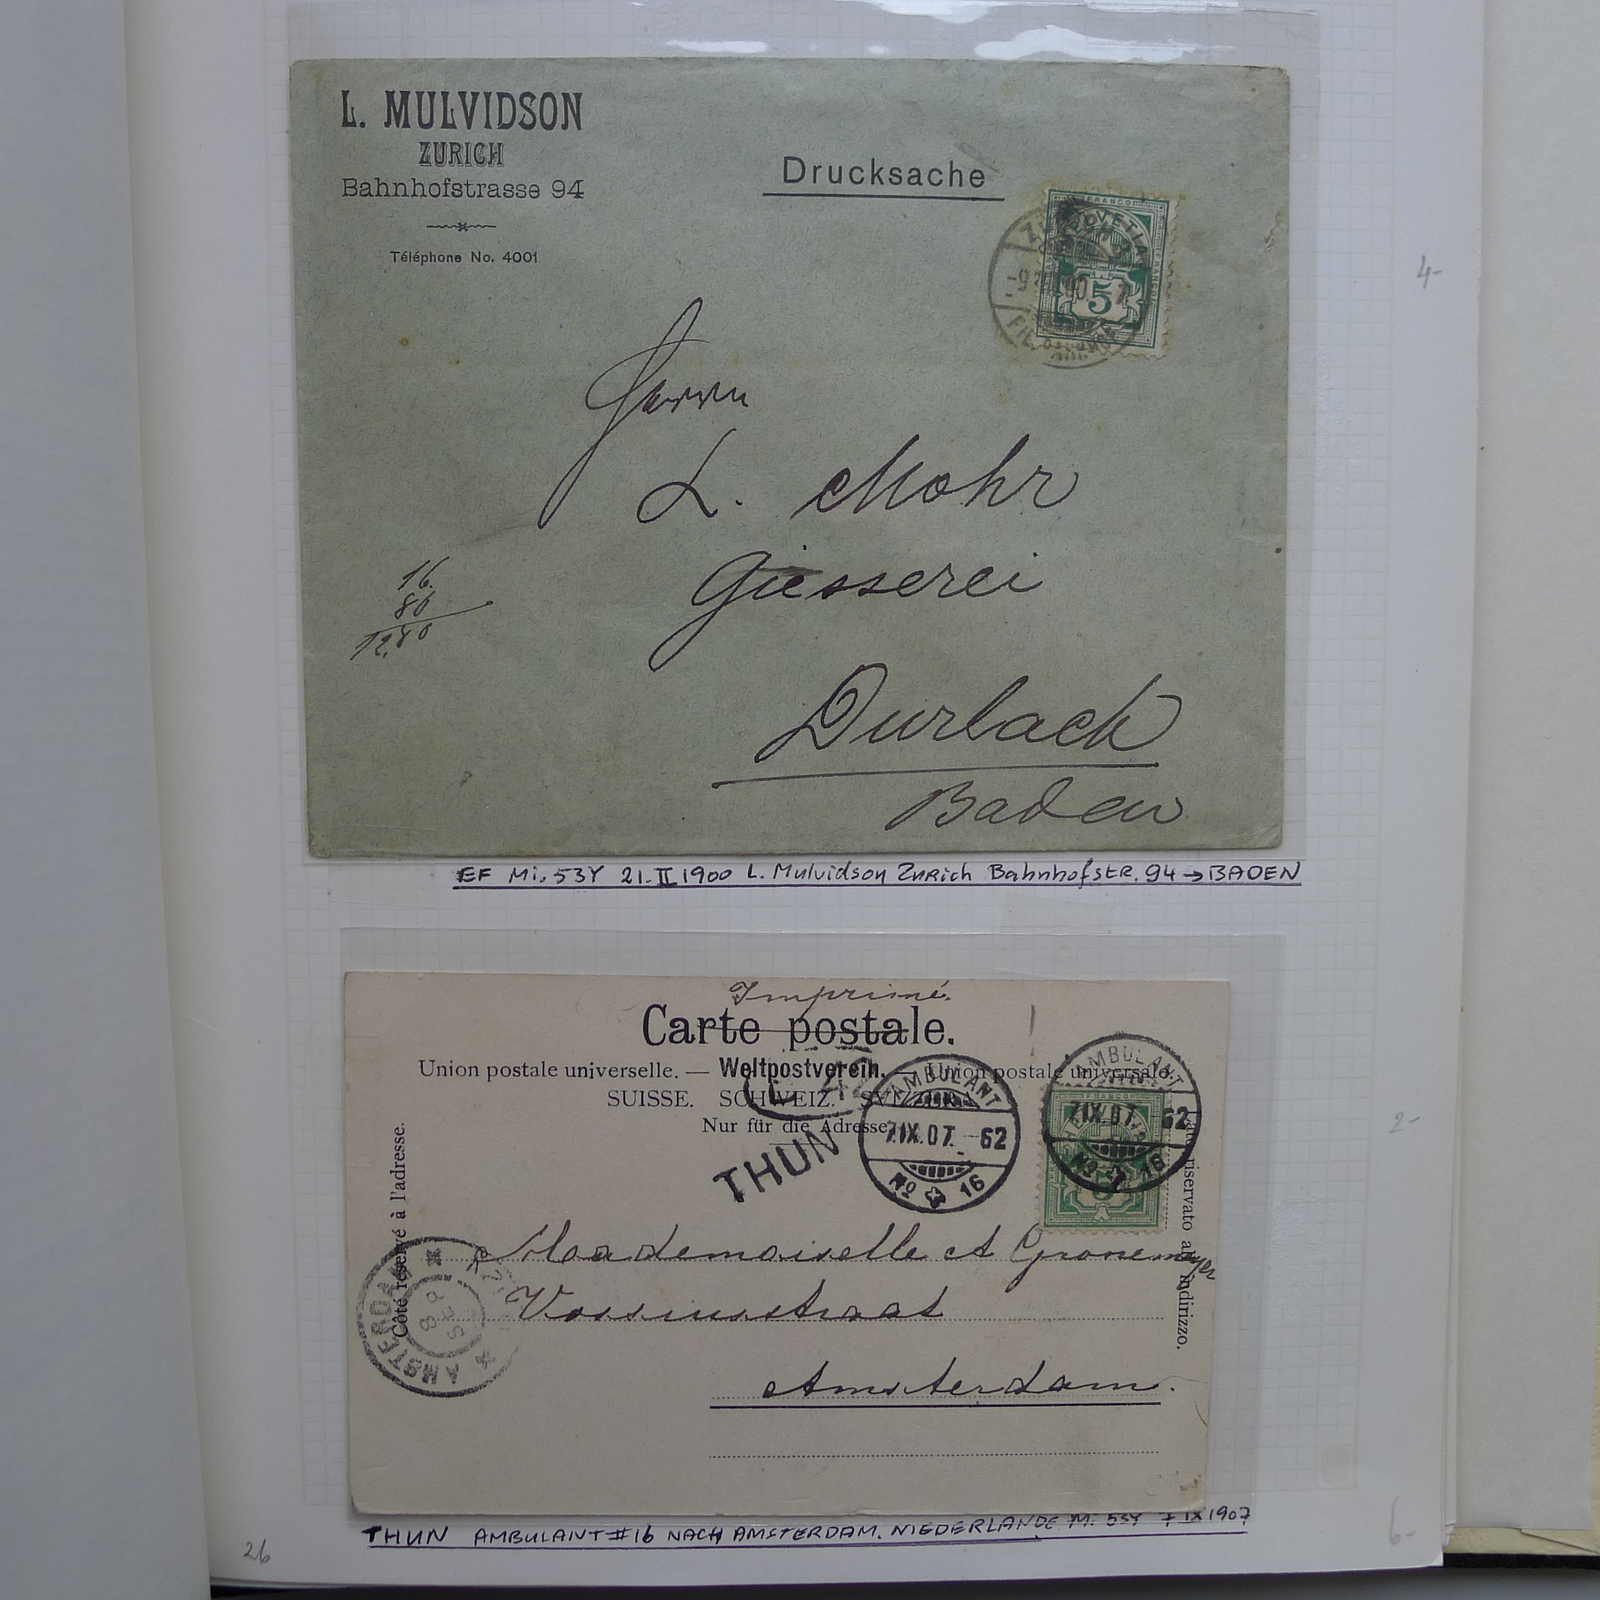 L. MULVIDSON
ZURICH
Bahnhofstrasse 94
Téléphone No. 4001
Drucksache
FRANCO
HELVETIA
5
Herrn
L. Mohr
Giesserei
Durlach
Baden
16.
80
12.80
4-
EF Mi. 53Y 21.II 1900 L. Mulvidson Zurich Bahnhofstr. 94 → BADEN
Imprimé.
Carte postale.
Union postale universelle. — Weltpostverein. — Union postale universale.
SUISSE. SCHWEIZ. SVIZZERA.
Nur für die Adresse.
Côté réservé à l'adresse.
THUN
AMBULANT
7.IX.07. 62
No 16
AMBULANT
7.IX.07. 62
No 16
Mademoiselle A Gronemeyer
Vossiusstraat
Amsterdam.
AMSTERDAM
8 SEP
riservato all'indirizzo.
2-
THUN AMBULANT #16 NACH AMSTERDAM, NIEDERLANDE Mi. 53Y 7 IX 1907
26
6-